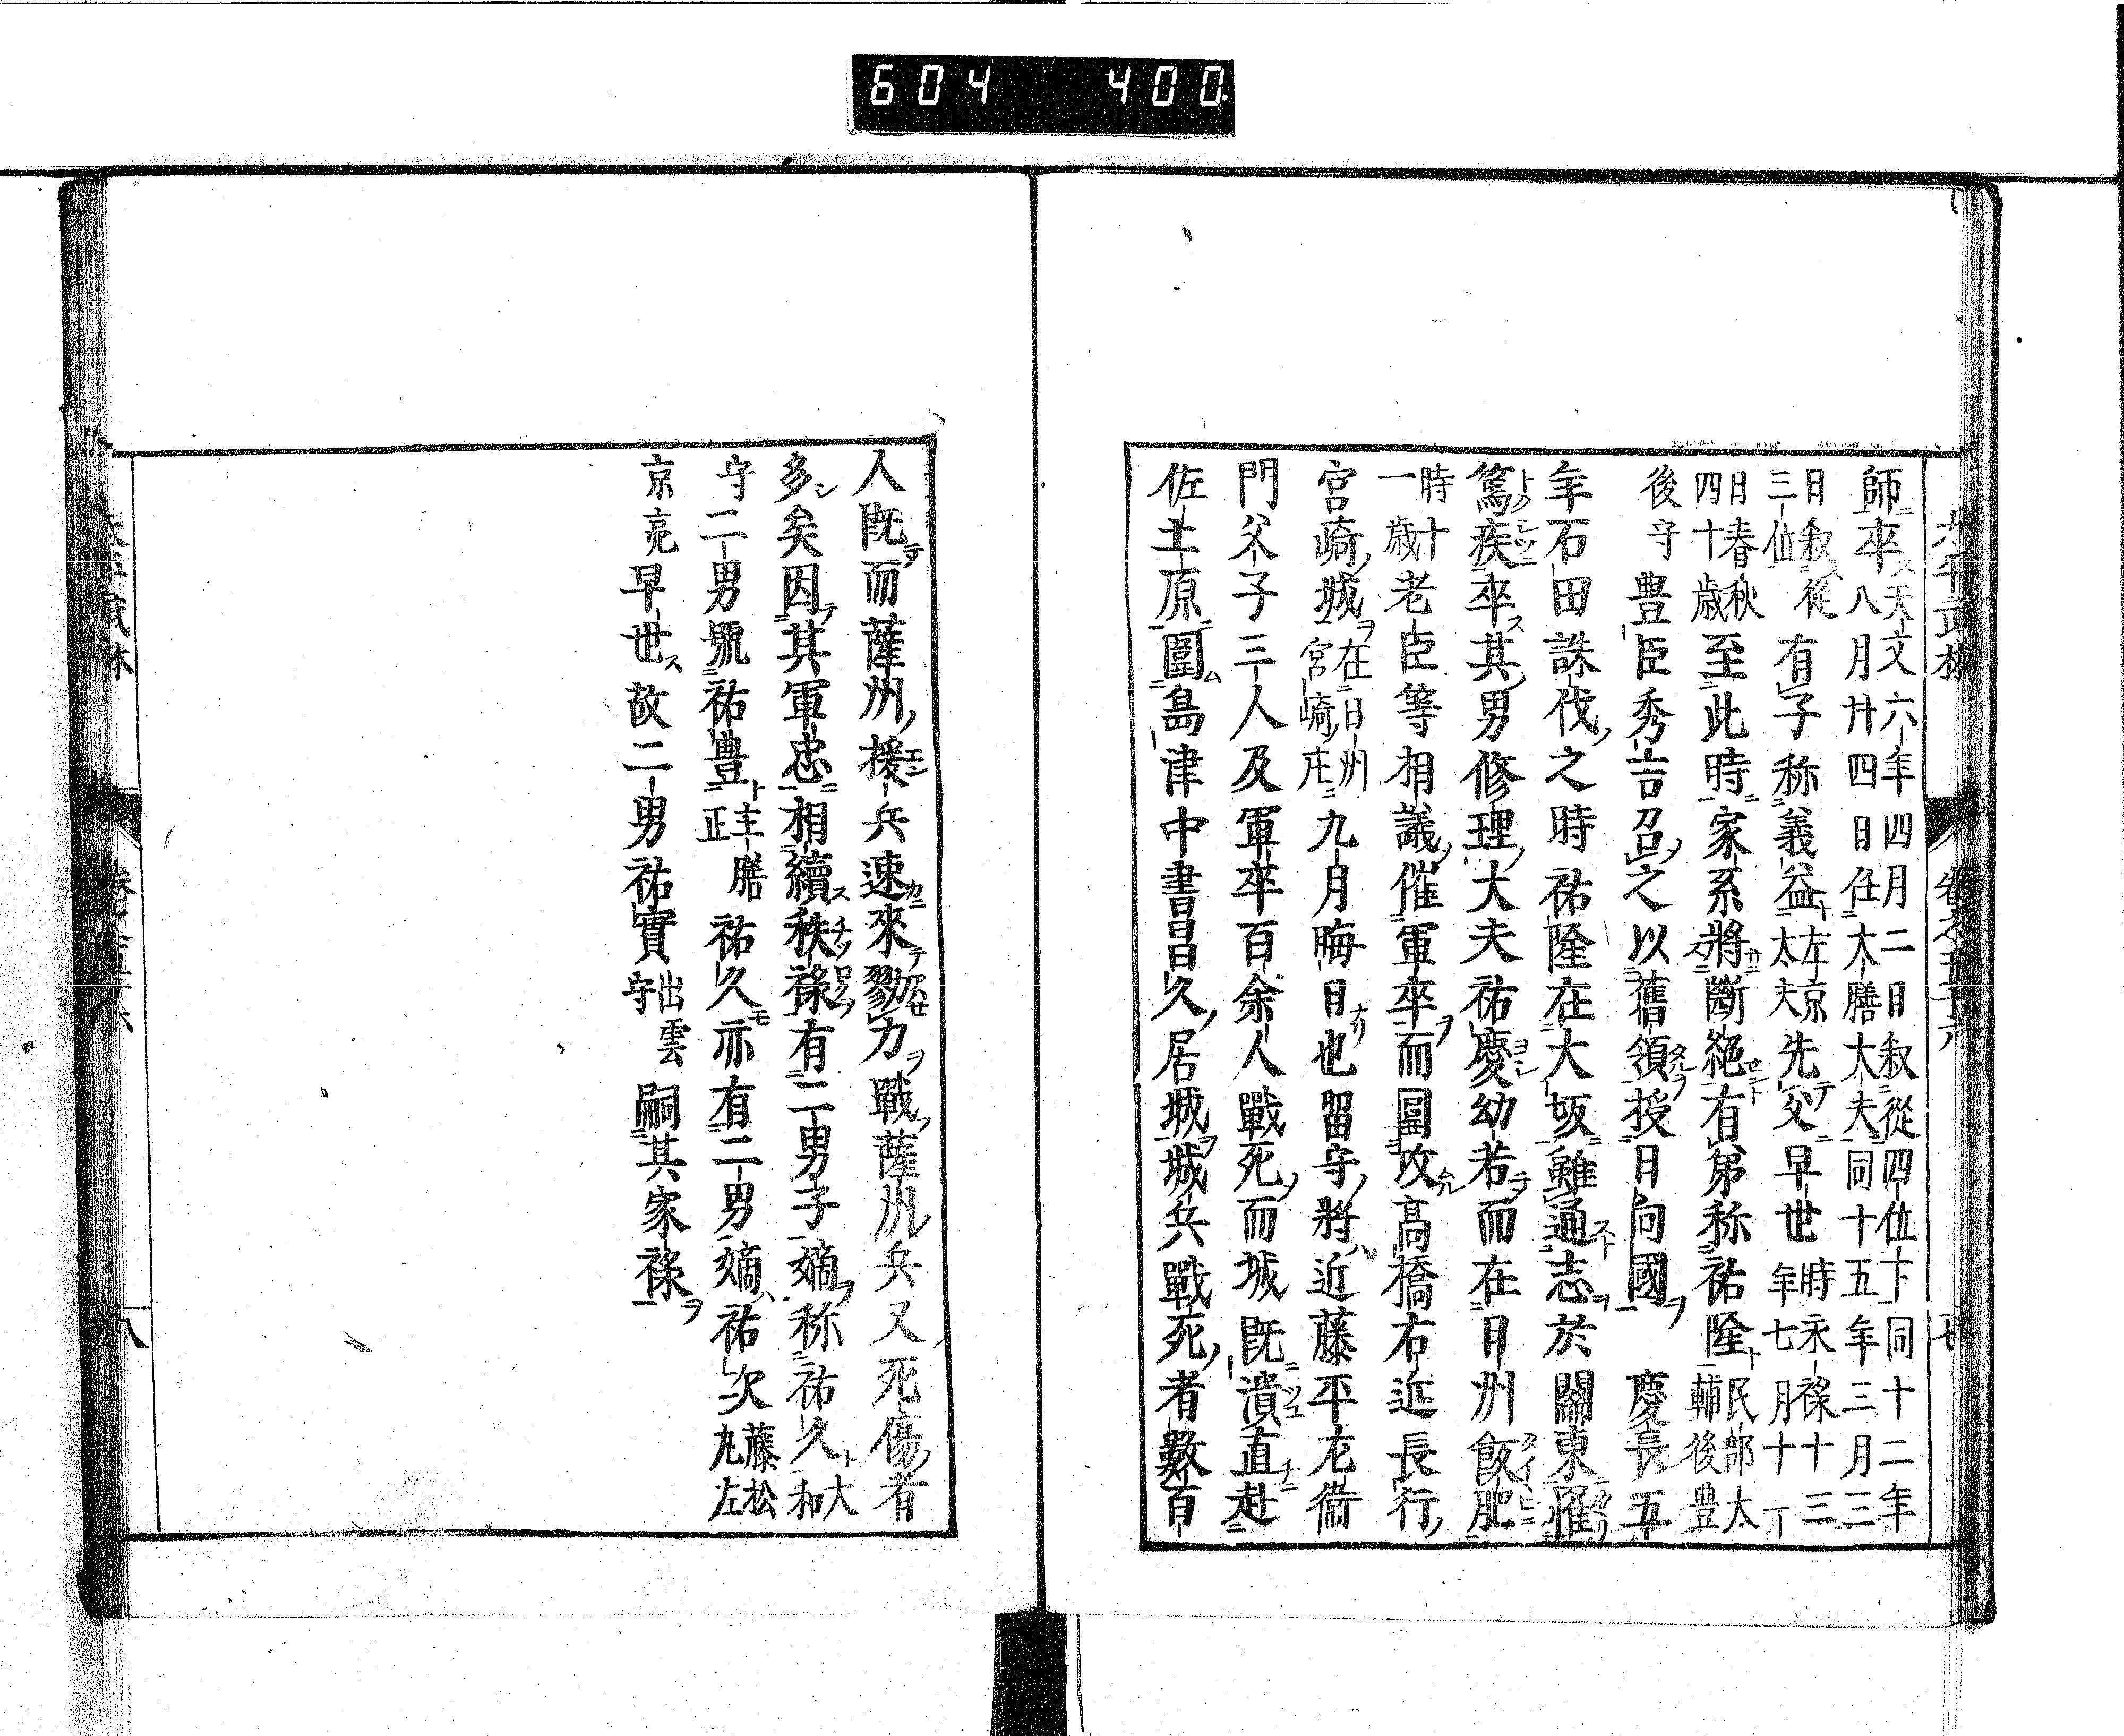 604 400
師卒天文六年四月二日叙從四位下同十二年八月廿四日任大膳大夫同十五年三月三
日叙從三位有子称義益左京太夫先父早世時永禄十三年七月十一
日春秋四十歳至此時家系將斷絶有弟称祐隆民部太輔後豊
後守豊臣秀吉召之以舊領授日向國 慶長五
年石田誅伐之時祐隆在大坂雖通志於關東罹
篤疾卒其男修理大夫祐慶幼若而在日州飫肥
時十一歳老臣等相議催軍卒而圍攻髙橋右近長行
宮崎城在日州宮崎庄九月晦日也留守將近藤平左衞
門父子三人及軍卒百余人戰死而城既潰直赴
佐土原圍島津中書昌久居城城兵戰死者數百
人既而薩州援兵速來勠力戰薩州兵又死傷者
多矣因其軍忠相續秩禄有二男子嫡称祐久大和
守二男號祐豊主膳正祐久亦有二男嫡祐次藤松丸左
京亮早世故二男祐實出雲守嗣其家禄
八